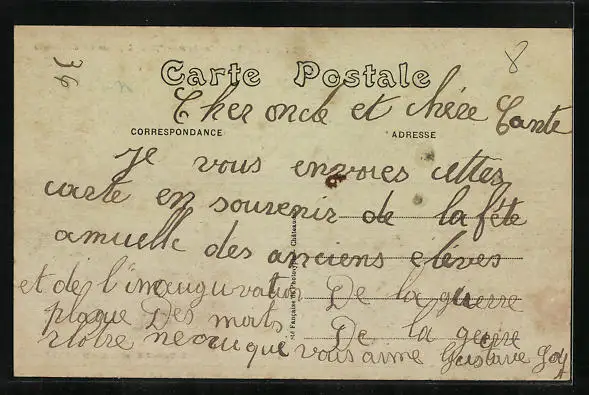 Carte Postale
8
Cher oncle et chère Tante
CORRESPONDANCE
ADRESSE
Je vous envoies cettes
carte en souvenir de la fête
annuelle des anciens élèves
et de l'inauguration De la guerre
plaque Des morts De la guerre
Notre neveu que vous aime Gustave
Sté Française de Phototypie, Château